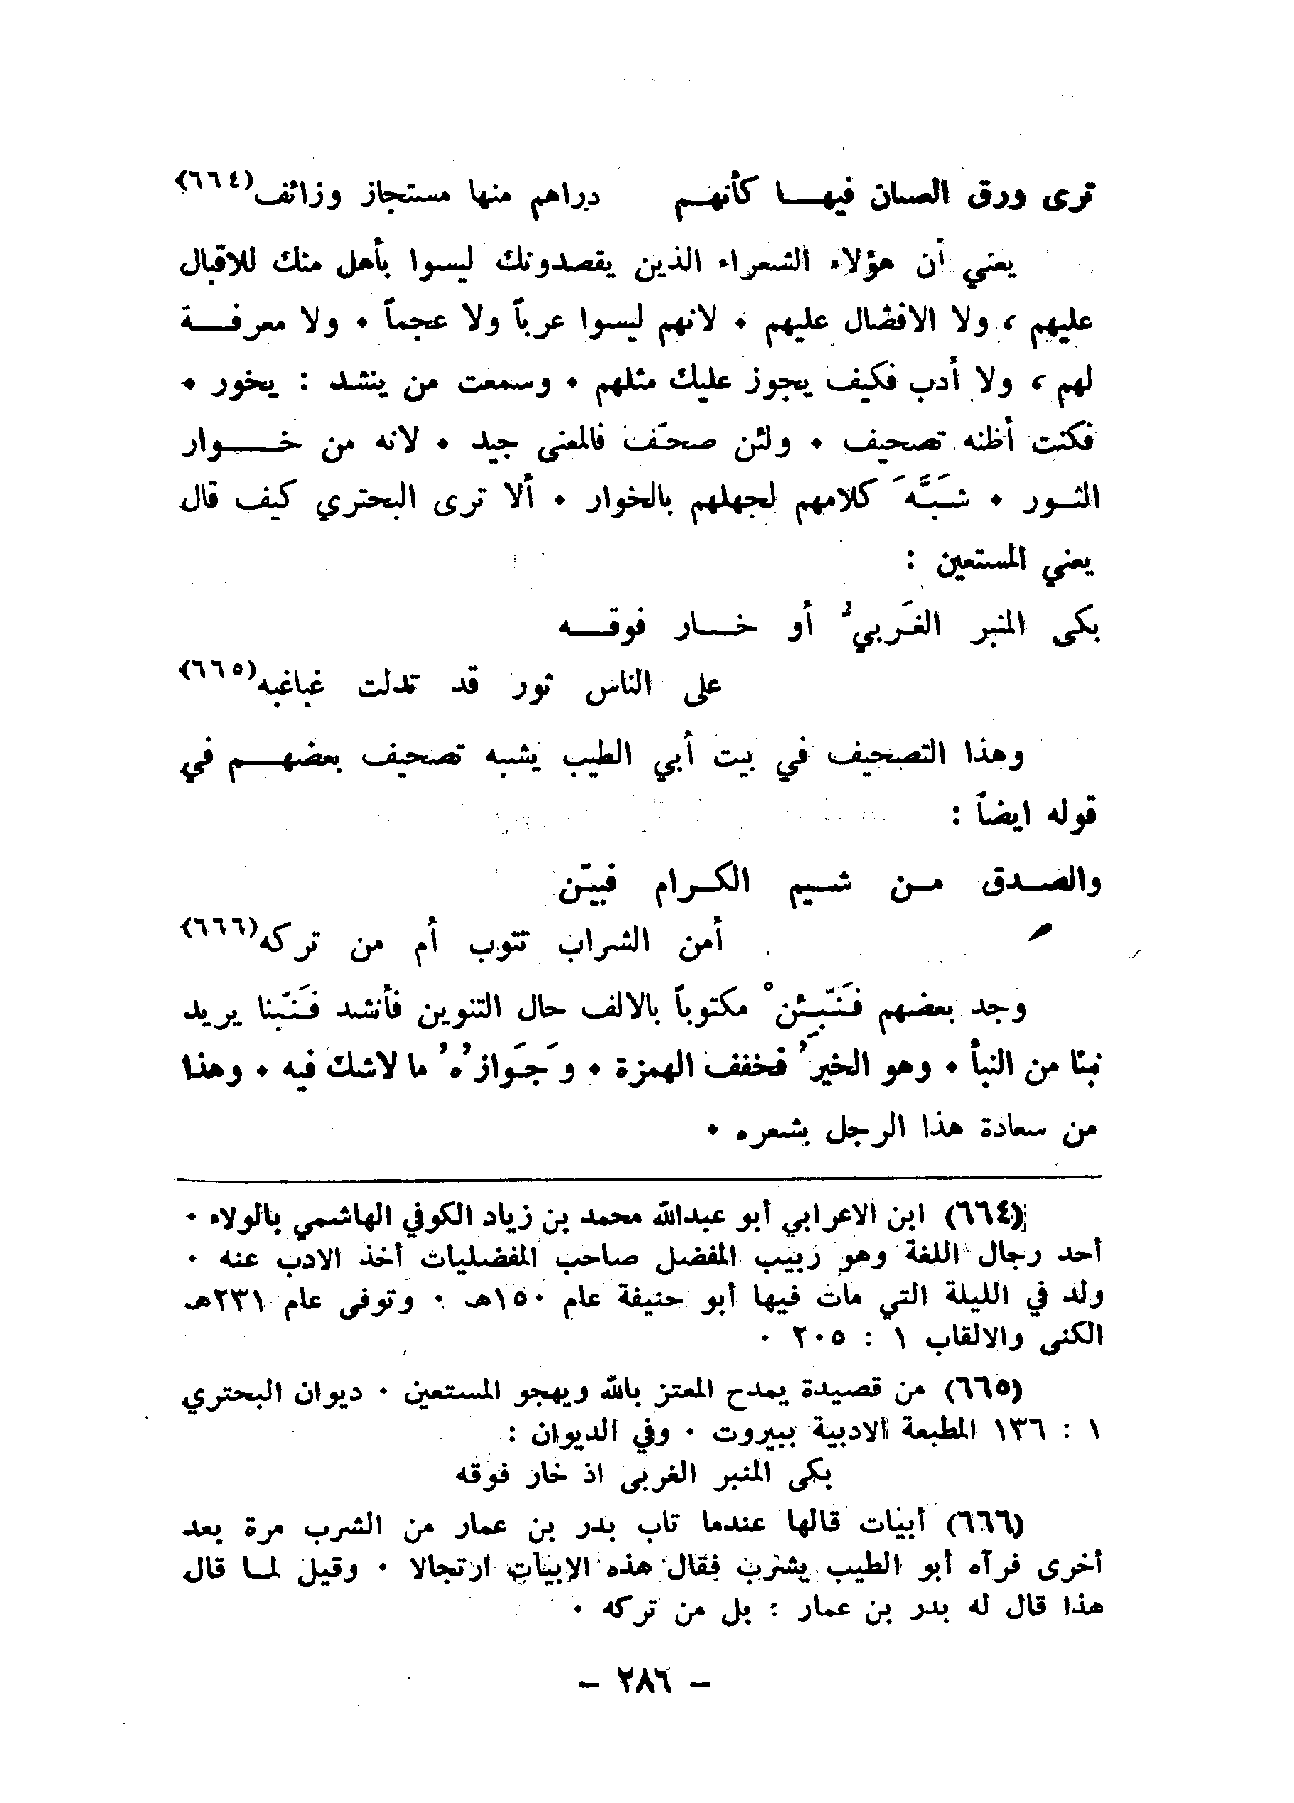 ترى ورق الصبان فيهـا كأنهـم دراهم منها مستجاز وزائف(٦٦٤)
يعني أن هؤلاء الشعراء الذين يقصدونك ليسوا بأهل منك للاقبال
عليهم ، ولا الافضال عليهم • لانهم ليسوا عرباً ولا عجماً • ولا معرفـة
لهم ، ولا أدب فكيف يجوز عليك مثلهم • وسمعت من ينشد : يخور •
فكنت أظنه تصحيف • ولئن صحّف فالمعنى جيد • لانه من خـوار
الثـور • شَبَّهَ كلامهم لجهلهم بالخوار • ألا ترى البحتري كيف قال
يعني المستعين :
بكى المنبر الغَربيُّ أو خـار فوقـه
على الناس ثور قد تدلت غباغبه(٦٦٥)
وهذا التصحيف في بيت أبي الطيب يشبه تصحيف بعضهـم في
قوله ايضاً :
والصـدق مـن شـيم الكـرام فبيّن
أمن الشراب تتوب أم من تركه(٦٦٦)
وجد بعضهم فَنَبِّئنْ مكتوباً بالالف حال التنوين فأنشد فَنَبّنا يريد
نبئا من النبأ • وهو الخبرُ فخفف الهمزة • وَجَوازُهُ ما لاشك فيه • وهذا
من سعادة هذا الرجل بشعره •
(٦٦٤) ابن الاعرابي أبو عبدالله محمد بن زياد الكوفي الهاشمي بالولاء •
أحد رجال اللغة وهو ربيب المفضل صاحب المفضليات أخذ الادب عنه •
ولد في الليلة التي مات فيها أبو حنيفة عام ١٥٠هـ • وتوفى عام ٢٣١هـ
الكنى والالقاب ١ : ٢٠٥ •
(٦٦٥) من قصيدة يمدح المعتز بالله ويهجو المستعين • ديوان البحتري
١ : ١٣٦ المطبعة الادبية ببيروت • وفي الديوان :
بكى المنبر الغربى اذ خار فوقه
(٦٦٦) أبيات قالها عندما تاب بدر بن عمار من الشرب مرة بعد
أخرى فرآه أبو الطيب يشرب فقال هذه الابيات ارتجالا • وقيل لمـا قال
هذا قال له بدر بن عمار : بل من تركه •
- ٢٨٦ -